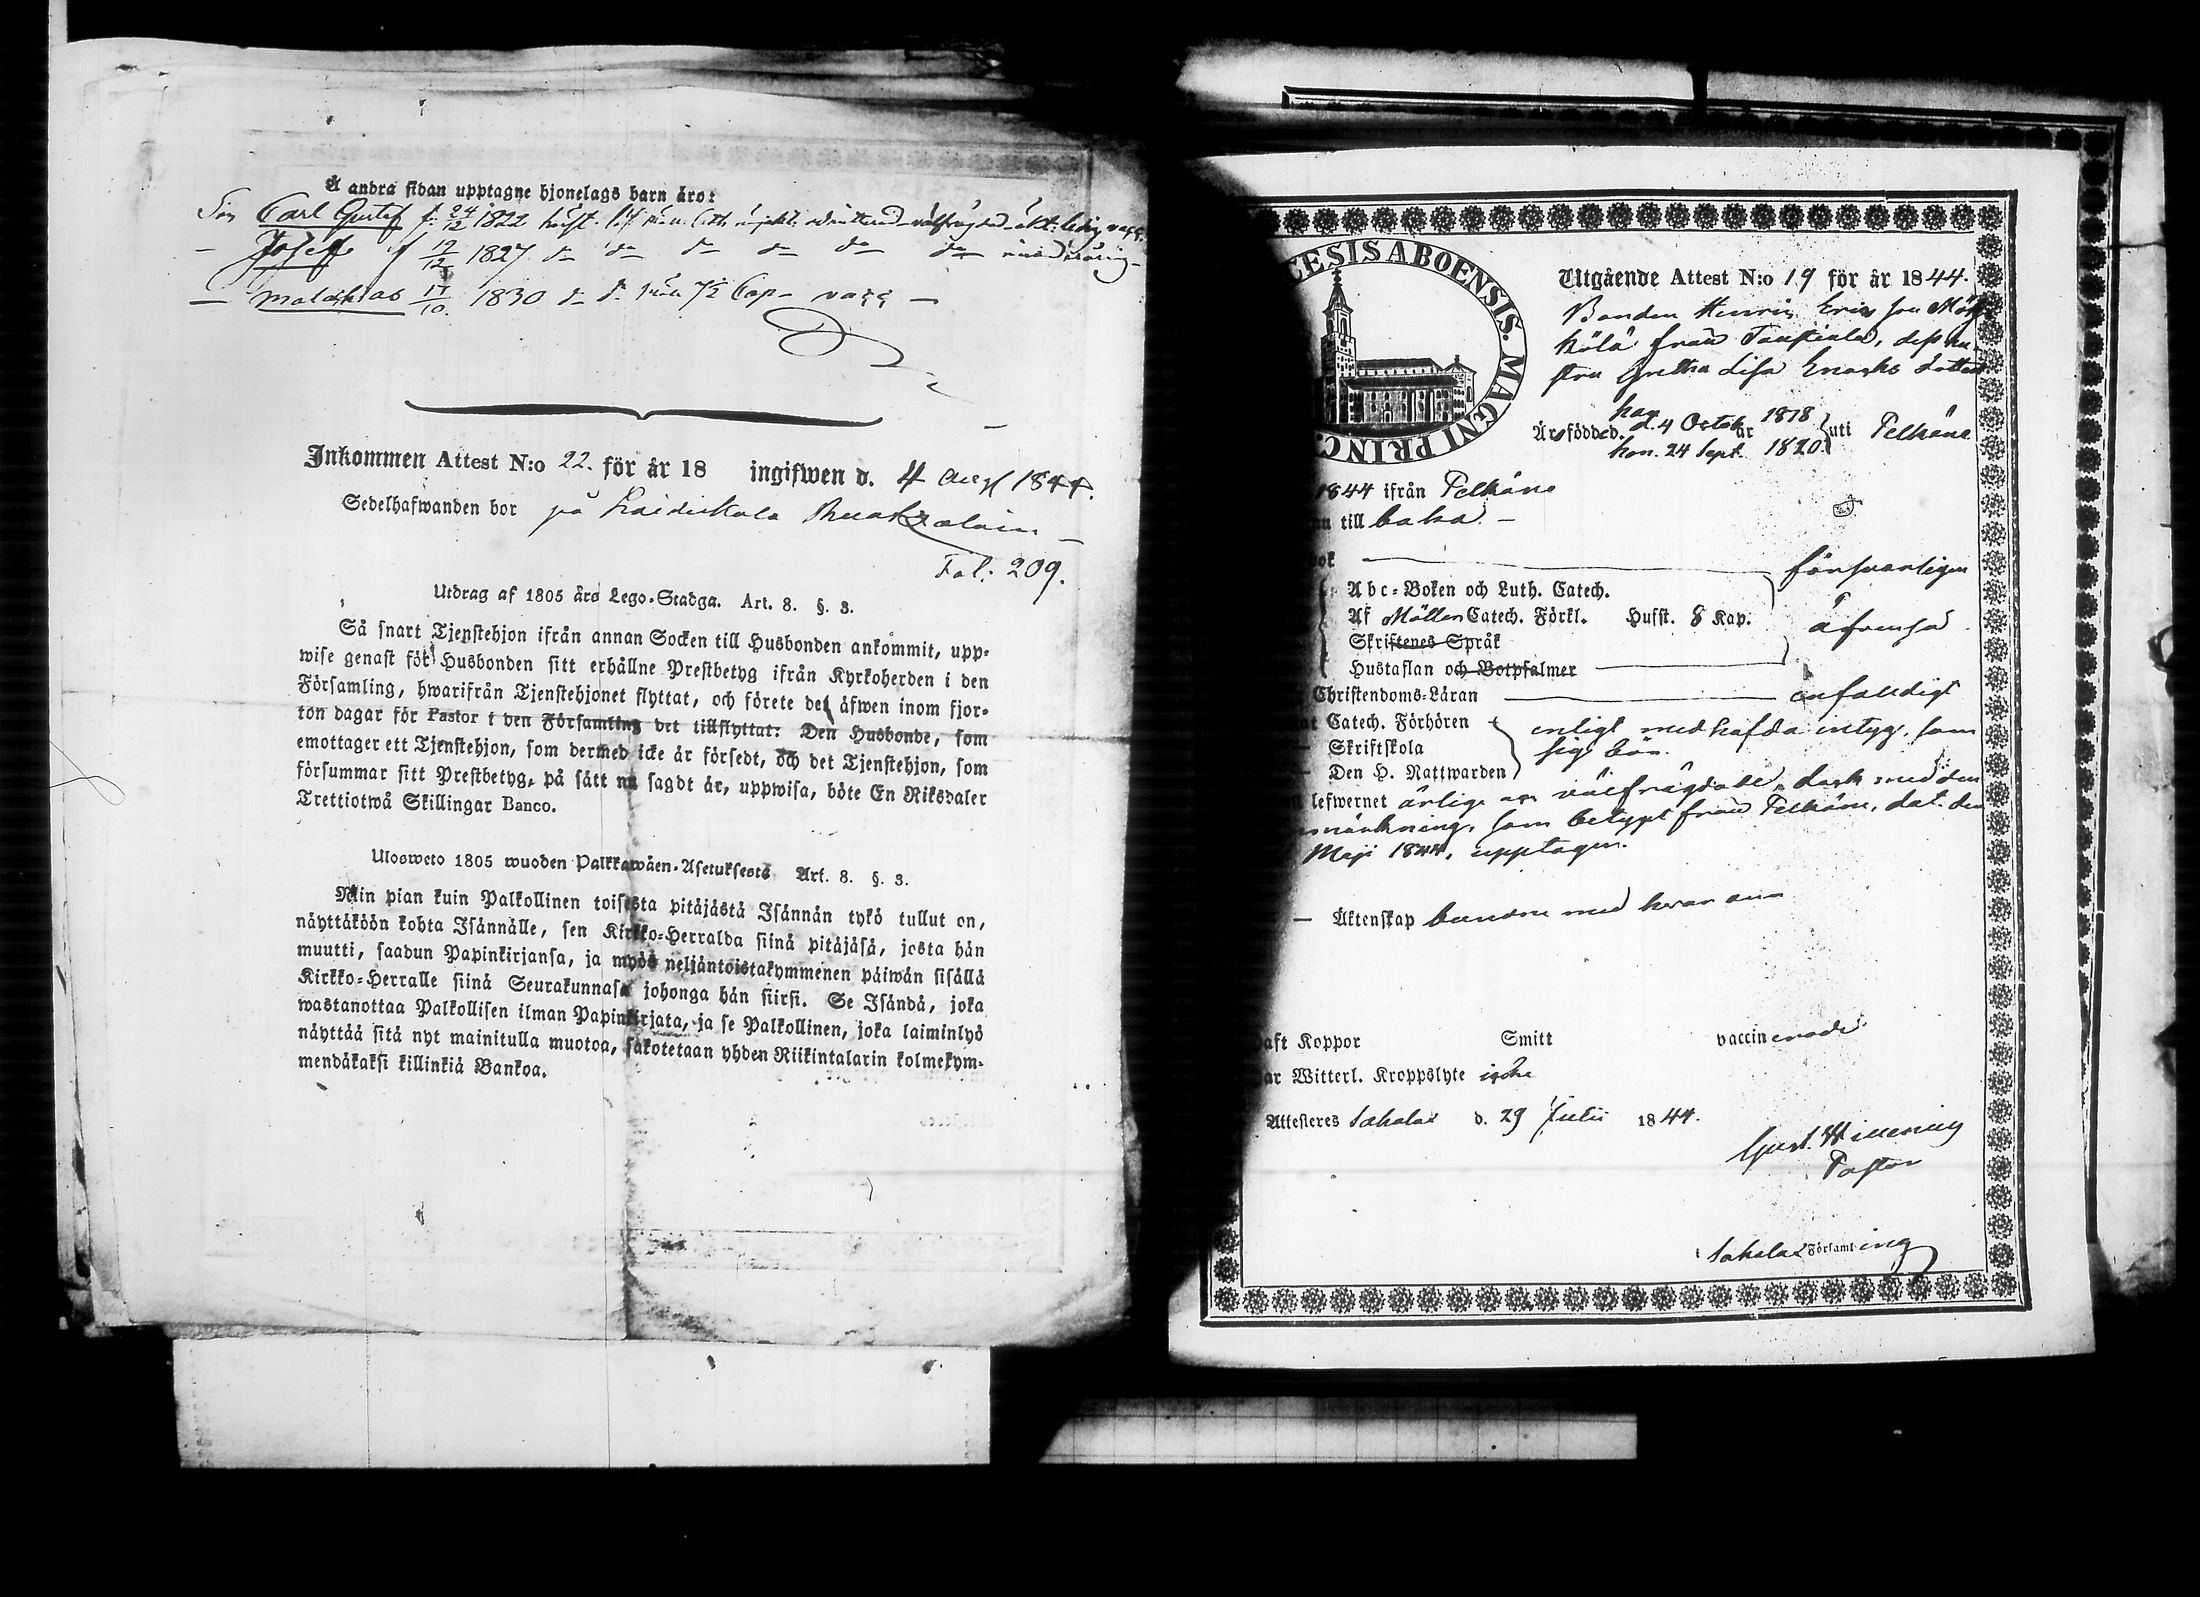 Å andra sidan upptagne hjonelags barn äro:
Son Carl Gustaf f. 24/12 1822
— Josef f 12/12 1827 do do do do do do
— Matthias 17/10. 1830 do do Cap – vacc —
Inkommen Attest N:o 22. för år 18 ingifwen d. 4 Aug 1844.
Sedelhafwanden bor på
Fol: 209.
Utdrag af 1805 års Lego-Stadga. Art. 8. §. 3.
Så snart Tjenstehjon ifrån annan Socken till Husbonden ankommit, upp-
wise genast för Husbonden sitt erhållne Prestbetyg ifrån Kyrkoherden i den
Församling, hwarifrån Tjenstehjonet flyttat, och förete det äfwen inom fjor-
ton dagar för Pastor i den Församling det tillflyttat: Den Husbonde, som
emottager ett Tjenstehjon, som dermed icke är försedt, och det Tjenstehjon, som
försummar sitt Prestbetyg, på sätt nu sagdt är, uppwisa, böte En Riksdaler
Trettiotwå Skillingar Banco.
Ulosweto 1805 wuoden Palkkawäen-Asetuksesta Art. 8. §. 3.
Niin pian kuin Palkollinen toisesta pitäjästä Isännän tykö tullut on,
näyttäköön kohta Isännälle, sen Kirkko-Herralda siinä pitäjäsä, josta hän
muutti, saadun Papinkirjansa, ja myös neljäntoistakymmenen päiwän sisällä
Kirkko-Herralle siinä Seurakunnasa johonga hän siirsi. Se Isändä, joka
wastanottaa Palkollisen ilman Papinkirjata, ja se Palkollinen, joka laiminlyö
näyttää sitä nyt mainitulla muotoa, sakotetaan yhden Riikintalarin kolmekym-
mendäkaksi killinkiä Bankoa.
CESIS ABOENSIS. MAGNI PRINC.
Utgående Attest N:o 19 för år 1844.
Bonden Henric Ericsson
kölä från dess hu-
stru Gretha Lisa Enochs dotter
Äro födde han d. 4 Octob. år 1818
hon. 24 Sept. 1820. uti Pelkäne
1844 ifrån Pelkäne
till baka. –
bok — försvarligen
Abc-Boken och Luth. Catech.
Af Möllers Catech. Förkl. Hufst. 8 Kap. äfvenså
Skriftenes Språk
Hustaflan och Botpsalmer
Christendoms-Läran — enfaldigt
Catech. Förhören
Skriftskola
Den H. Nattwarden
enligt medhafda intyg, som
sig bör.
lefwernet ärlige och välfrägdade, dock med den
anmärkning, som betyget från Pelkäne, dat. den
Maji 1844, upptager.
— Äktenskap bundne med hvarann
haft Koppor Smitt vaccinerade.
har Witterl. Kroppslyte icke
Attesteres Sahalax d. 29 Julii 1844.
Gust. Willenius
Pastor
i Sahalax Församling